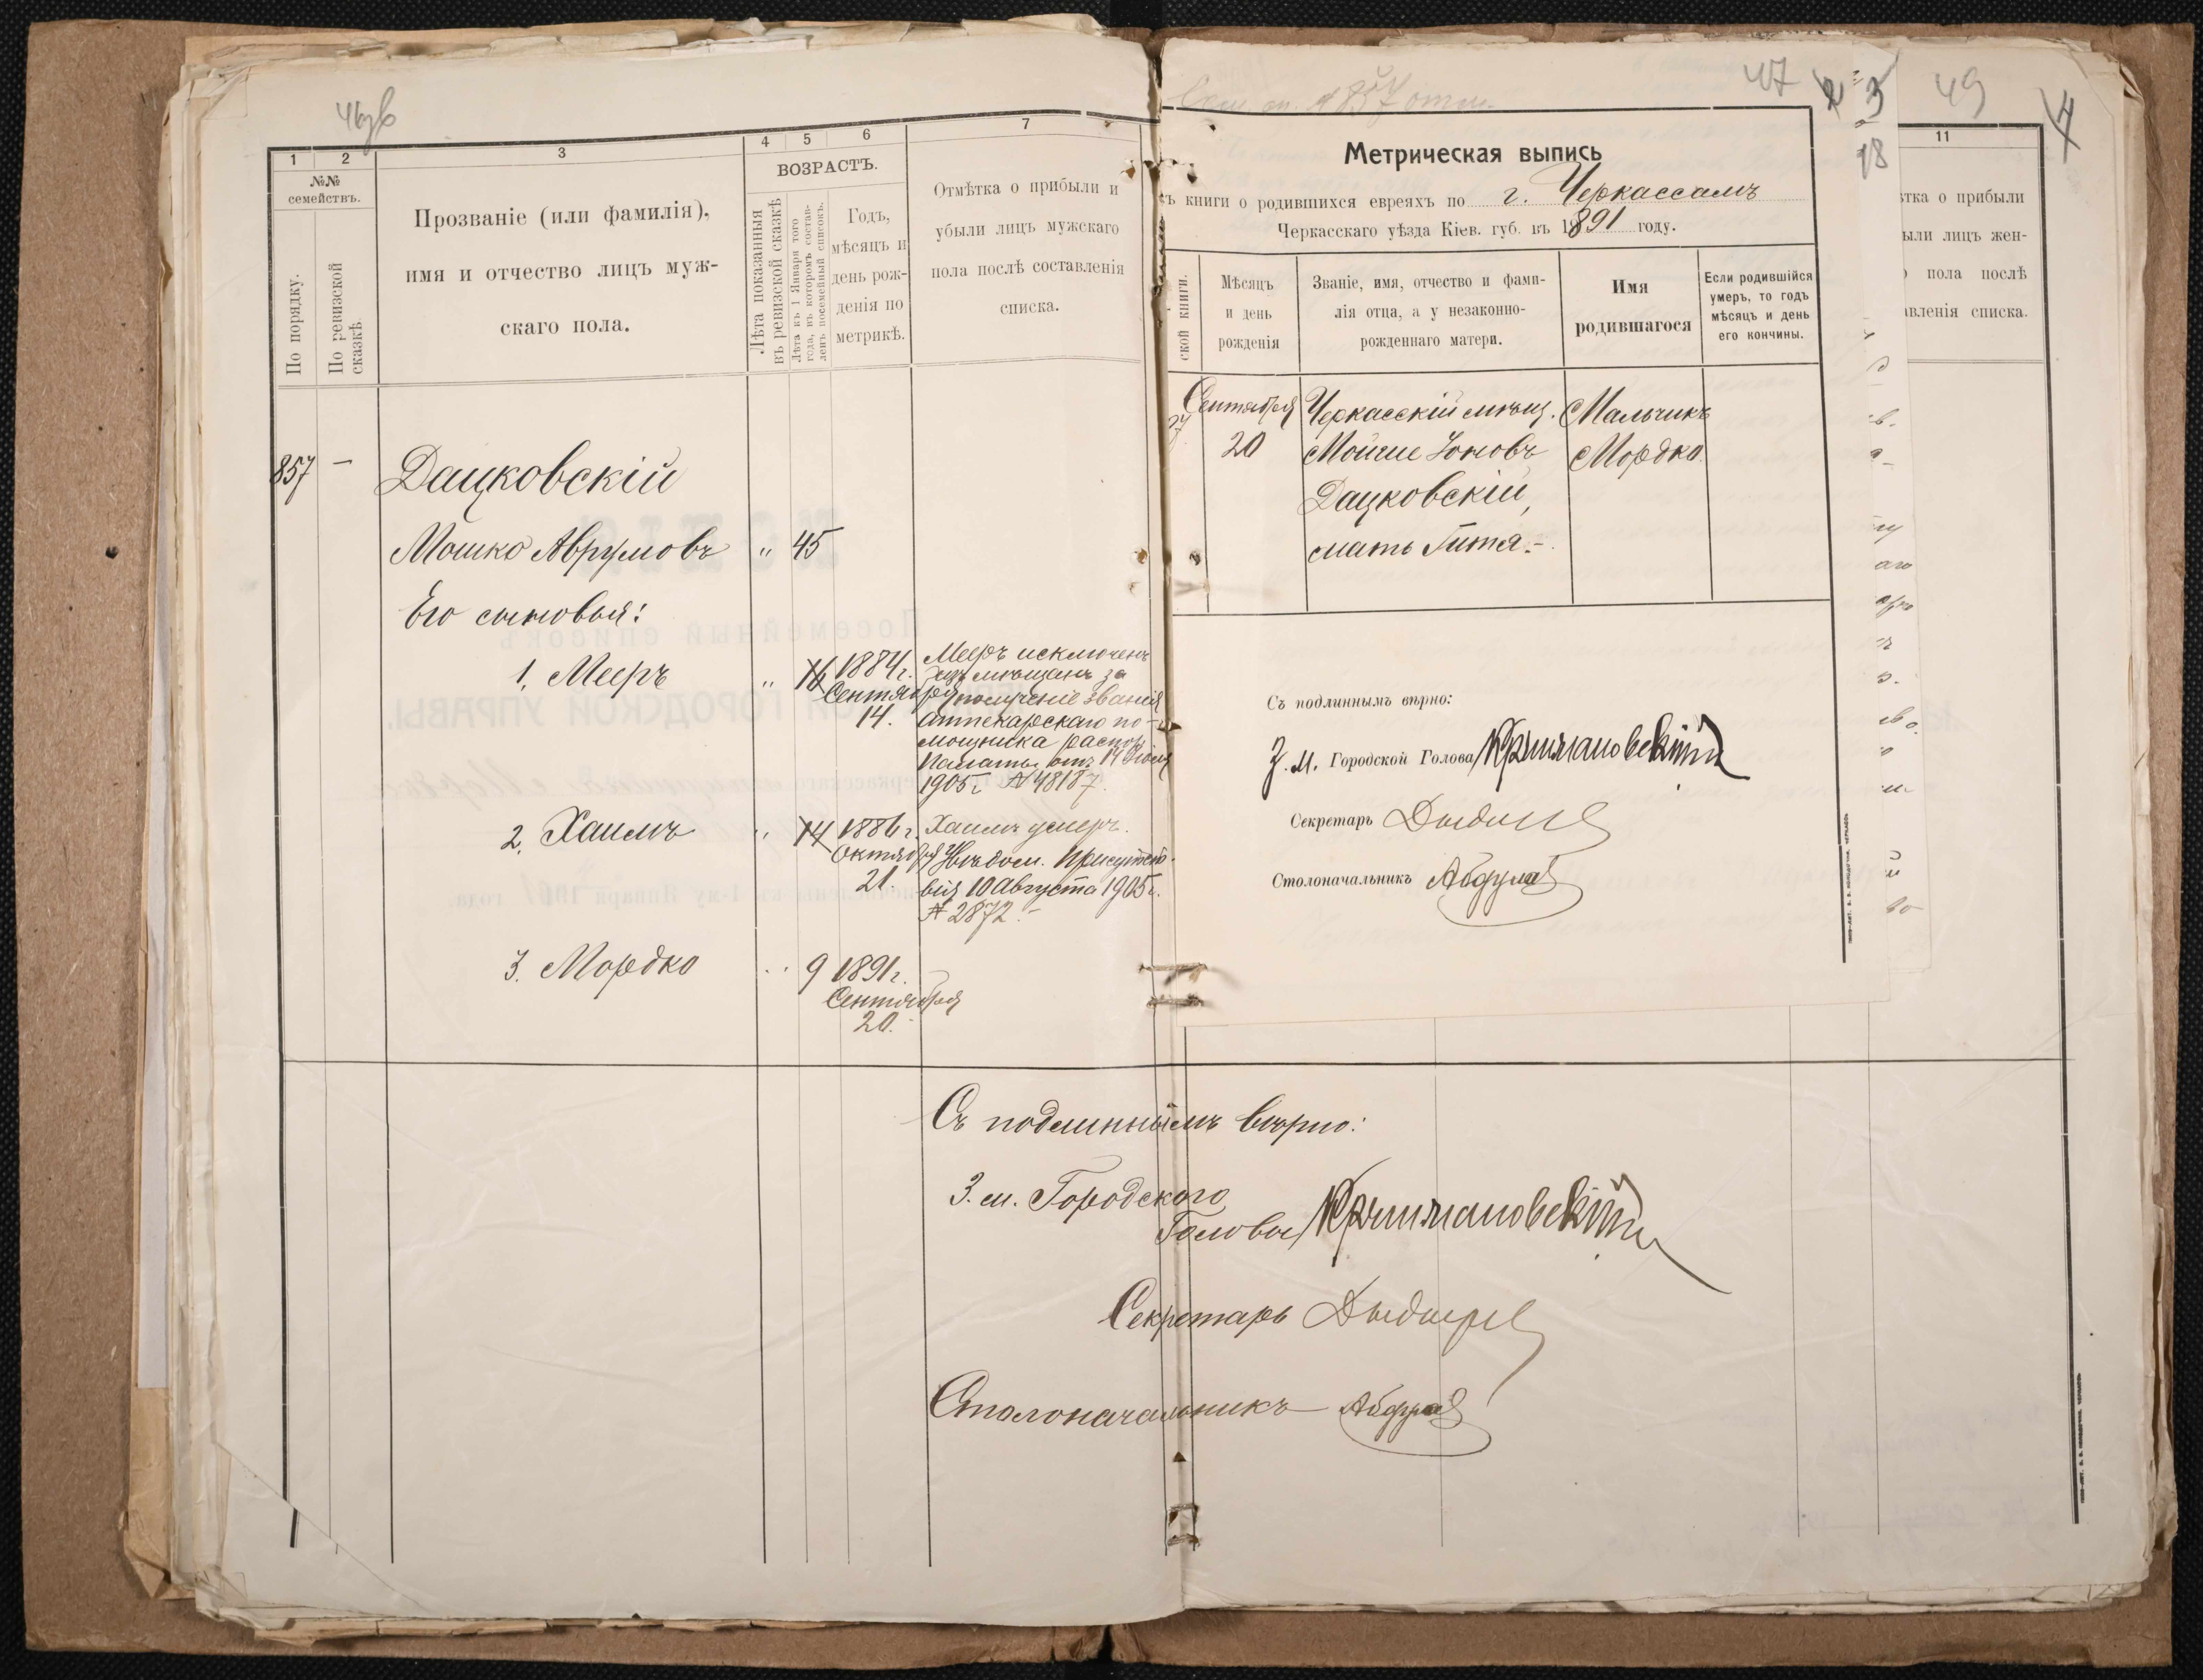 46об
1
2
3
4
5
6
7
№№
семействъ.
По порядку.
По ревизской
сказкѣ.
Прозваніе (или фамилія),
имя и отчество лицъ муж-
скаго пола.
ВОЗРАСТЪ.
Лѣта показанныя
въ ревизской сказкѣ
Лѣта къ 1 Января того
года, въ которомъ состав-
ленъ посемейный списокъ.
Годъ,
мѣсяцъ и
день рож-
денія по
метрикѣ.
Отмѣтка о прибыли и
убыли лицъ мужскаго
пола послѣ составленія
списка.
857 –
Дацковскій
Мошко Аврумовъ " 45
Его сыновья:
1. Мееръ " 16 1884 г.
Сентября
14.
Мееръ исключенъ
изъ мѣщанъ за
полученіе званія
аптекарскаго по-
мощника распор.
Палаты отъ 14 Іюля
1905 г. № 48187.
2. Хаимъ " 14 1886 г.
Октября
21.
Хаимъ умеръ.
Увѣдом. Присутст-
вія 10 Августа 1905 г.
№ 2872.–
3. Мордко " 9 1891 г.
Сентября
20.
Съ подлиннымъ вѣрно:
З. м. Городского
Головы
Секретарь
Столоначальникъ
47
2
3
18
49
4
857
Метрическая выпись
ъ книги о родившихся евреяхъ по г. Черкассамъ
Черкасскаго уѣзда Кіев. губ. въ 1891 году.
ской книги.
Мѣсяцъ
и день
рожденія
Званіе, имя, отчество и фами-
лія отца, а у незаконно-
рожденнаго матери.
Имя
родившагося
Если родившійся
умеръ, то годъ
мѣсяцъ и день
его кончины.
Сентября
20
Черкасскій мѣщ.
Мойше Іоновъ
Дацковскій,
мать Гитя.–
Мальчикъ
Мордко.
Съ подлиннымъ вѣрно:
З. м. Городской Голова
Секретарь
Столоначальникъ
11
тка о прибыли
ыли лицъ жен-
пола послѣ
вленія списка.